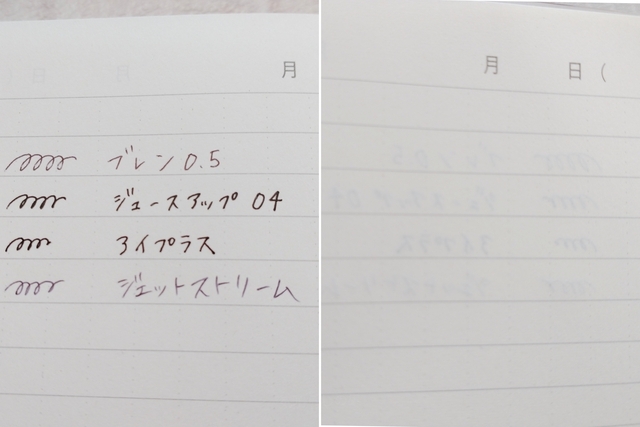 月
ブレン 0.5
ジュースアップ 04
スイプラス
ジェットストリーム
月 日 (